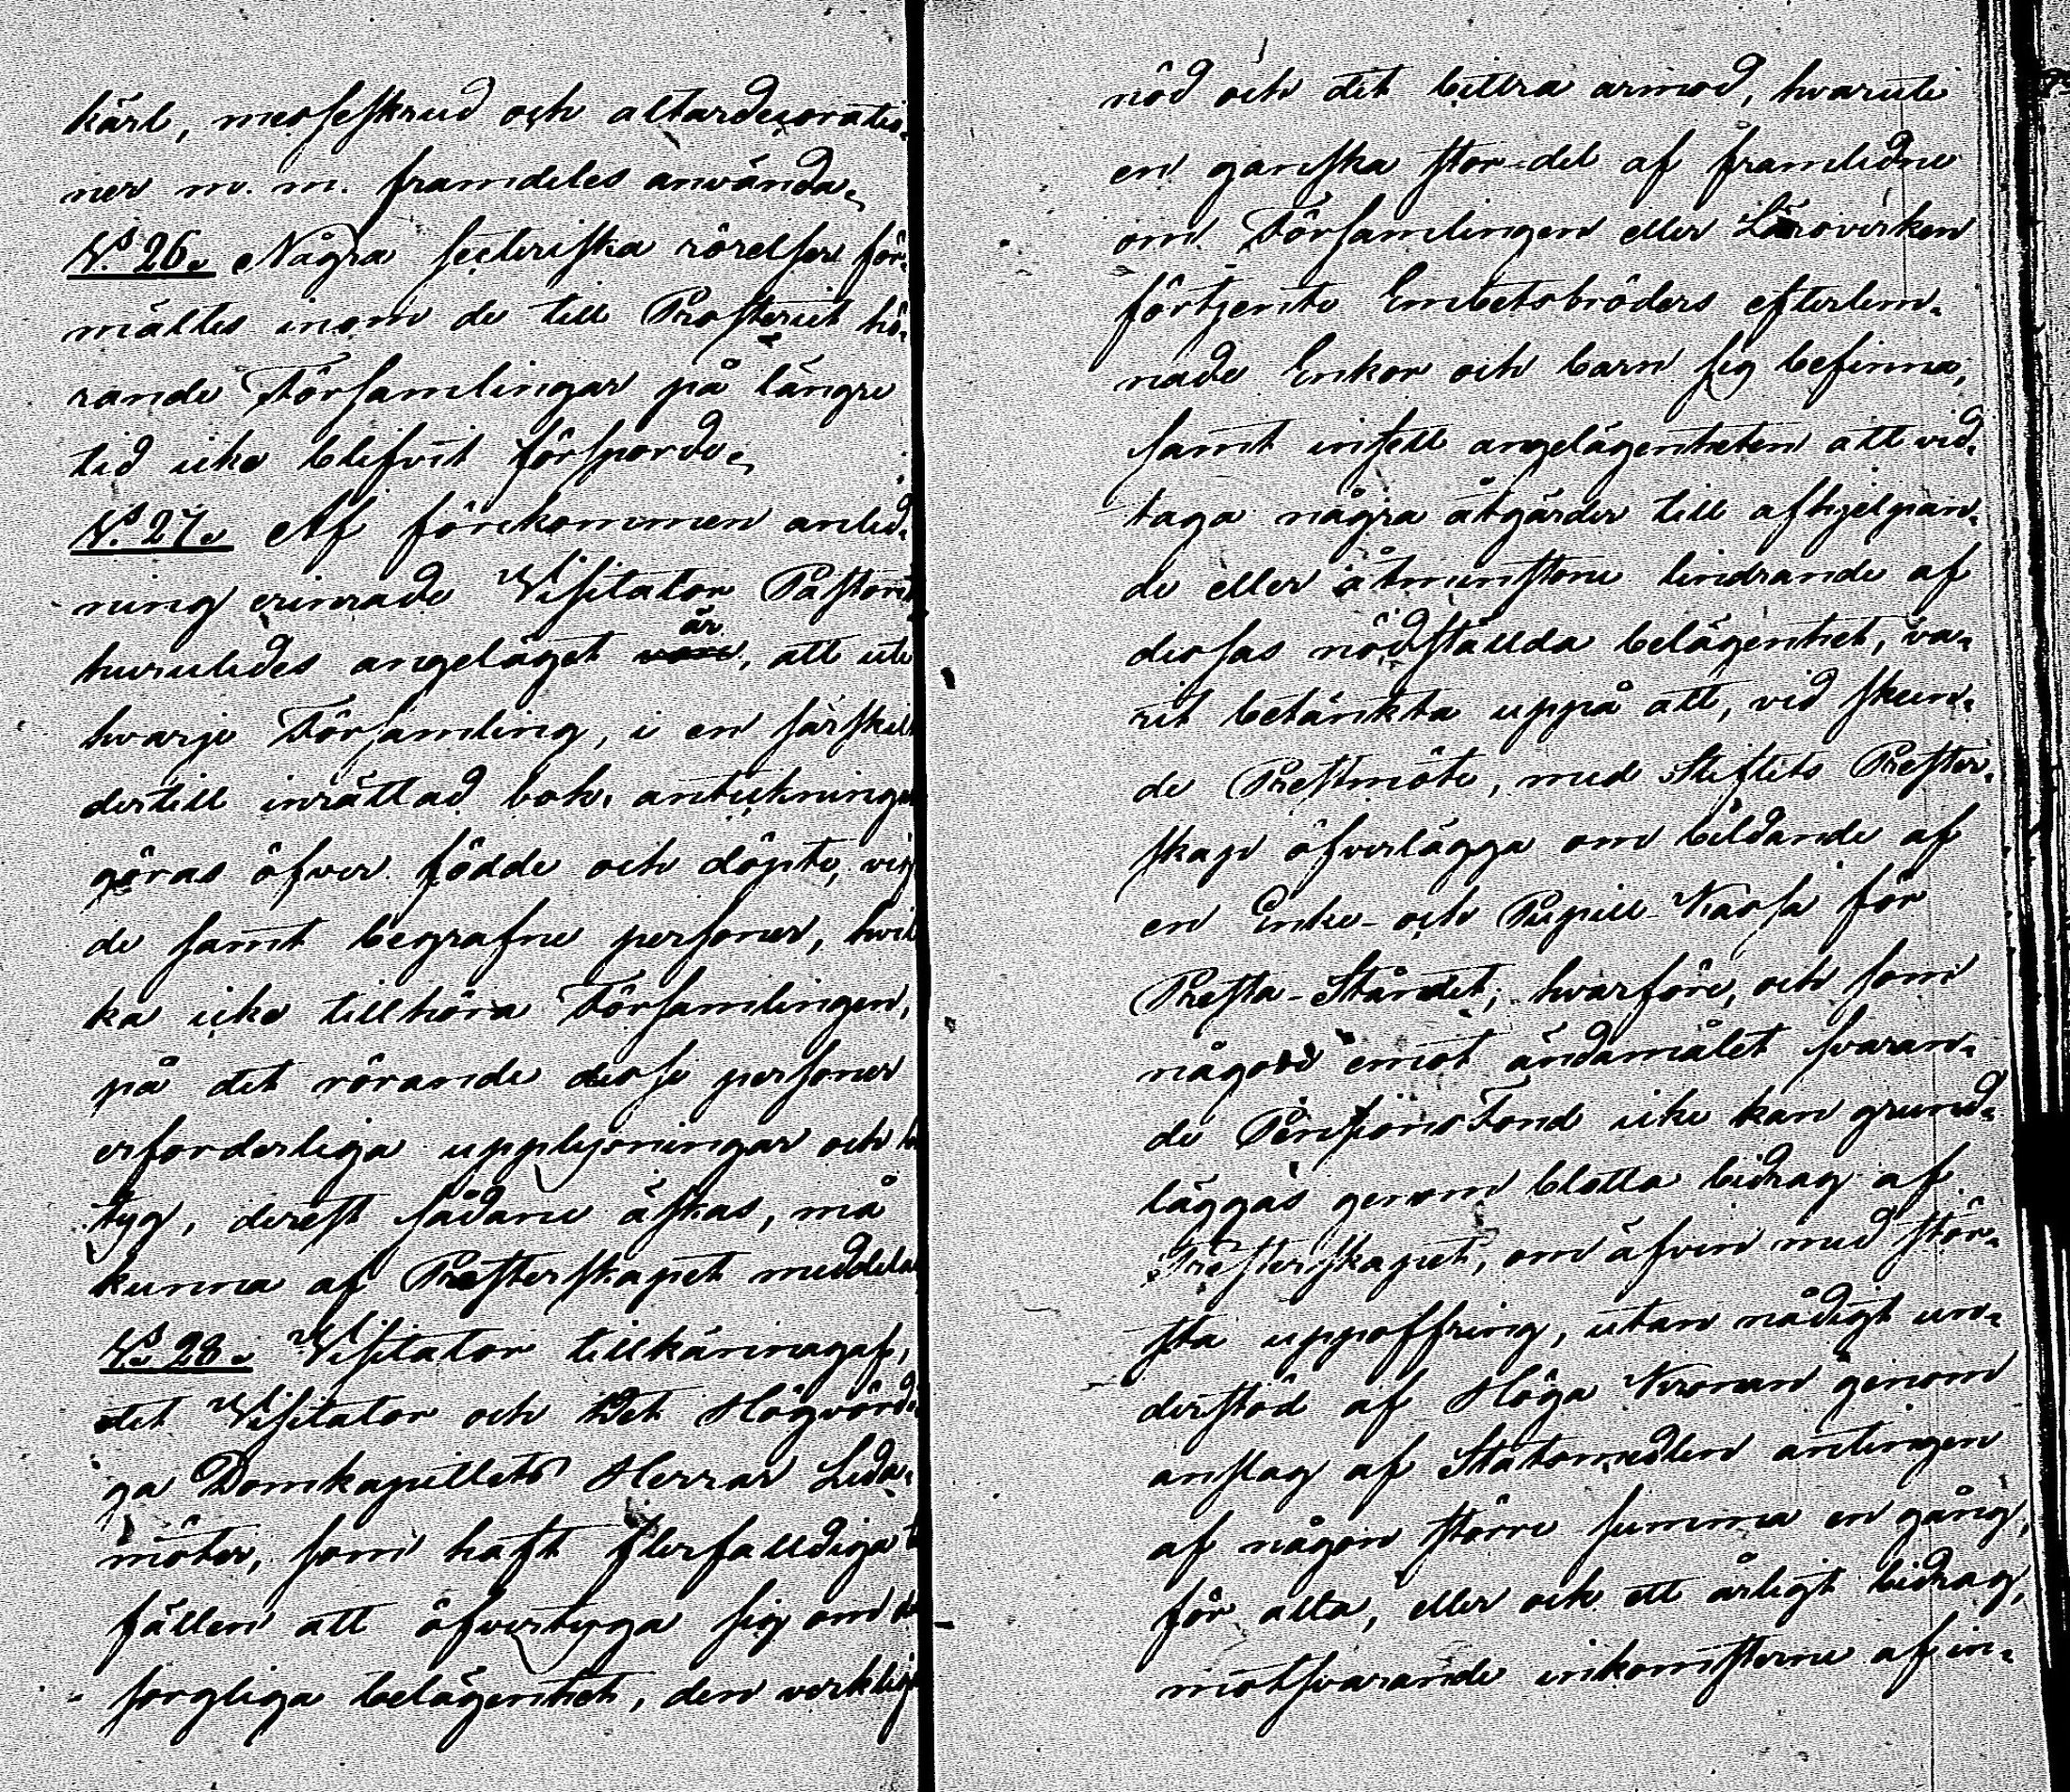 kärl, messeskrud och altardecoratio-
ner m. m. framdeles använda.
N:o 26. Några secteriska rörelser för-
mältes inom de till Prosteriet hö-
rande Församlingar på längre
tid icke blifvit försporde.
N:o 27. Af förekommen anled-
ning erinrade Visitator Pastor
huruledes angeläget är, att uti
hvarje Församling, i en särskilt
dertill inrättad bok, anteckningar
göras öfver födde och döpte, vig
de samt begrafne personer, hvil
ka icke tillhöra Församlingen,
på det rörande desse personer
erforderliga upplysningar och be
tyg, derest sådane äskas, må
kunna af Presterskapet meddelas
N:o 28. Visitator tillkännagaf,
det Visitator och Det Högvördi
ga Domkapitlets Herrar Leda-
möter, som haft flerfalldiga til
fällen att öfvertyga sig om den
sorgliga belägenhet, den verkliga
nöd och det bittra armod, hvaruti
en ganska stor del af framledne
om Församlingen eller Läroverken
förtjente Embetsbröders efterlem-
nade Enkor och barn sig befinna,
samt insett angelägenheten att vid-
taga några åtgärder till afhjelpan-
de eller åtminstone lindrande af
dessas nödställda belägenhet, va-
rit betänkta uppå att, vid skeen-
de Prestmöte, med Stiftets Prester-
skap öfverlägga om bildande af
en Enke- och Pupill-Kassa för
Presta-Ståndet; hvarföre, och som
någon emot ändamålet svaran-
de PensionsFond icke kan grund-
läggas genom blotta bidrag af
Presterskapet, om äfven med stör-
sta uppoffring, utan nådigt un-
derstöd af Höga Kronan genom
anslag af Statsmedlen antingen
af någon större summa en gång
för alla, eller ock ett årligt bidrag,
motsvarande inkomsterne af in-